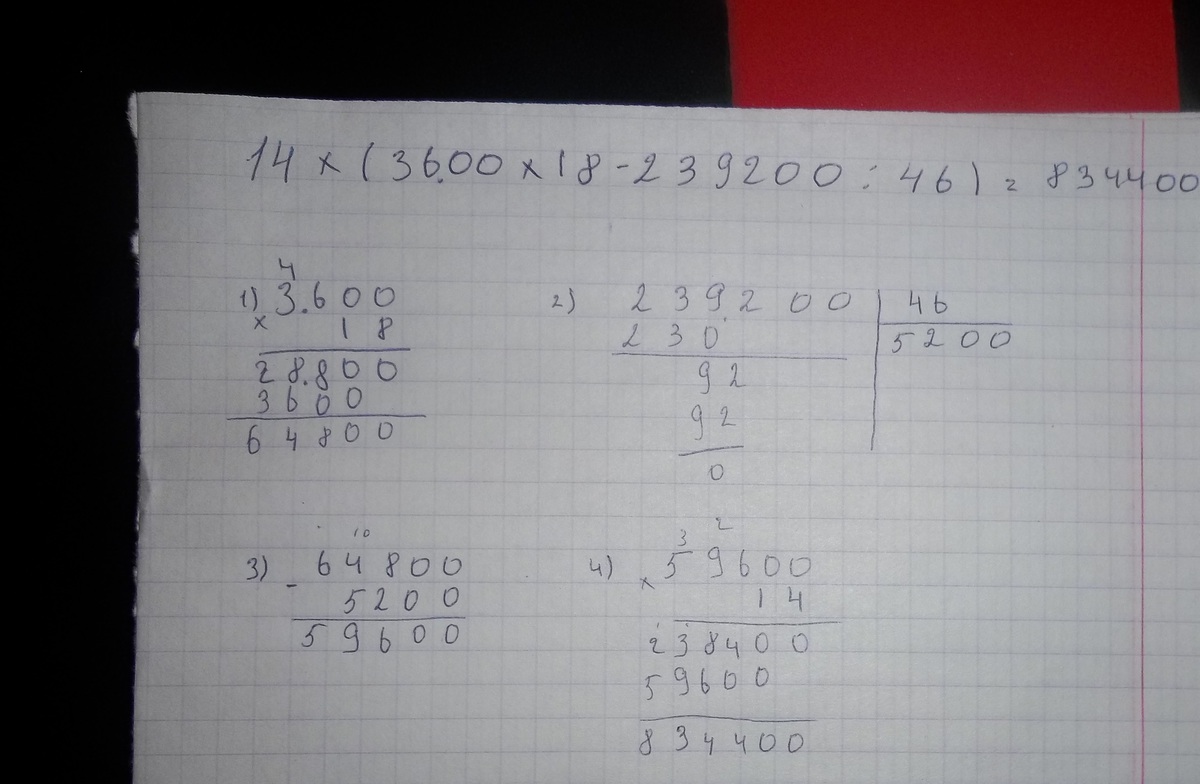 14 × (3600 × 18 - 239200 : 46) = 834400
4
1) 3.600
× 18
28.800
3600
64800
2) 239200 | 46
230 | 5200
92
92
0
10
3) - 64800
5200
59600
3 2
4) × 59600
14
238400
59600
834400